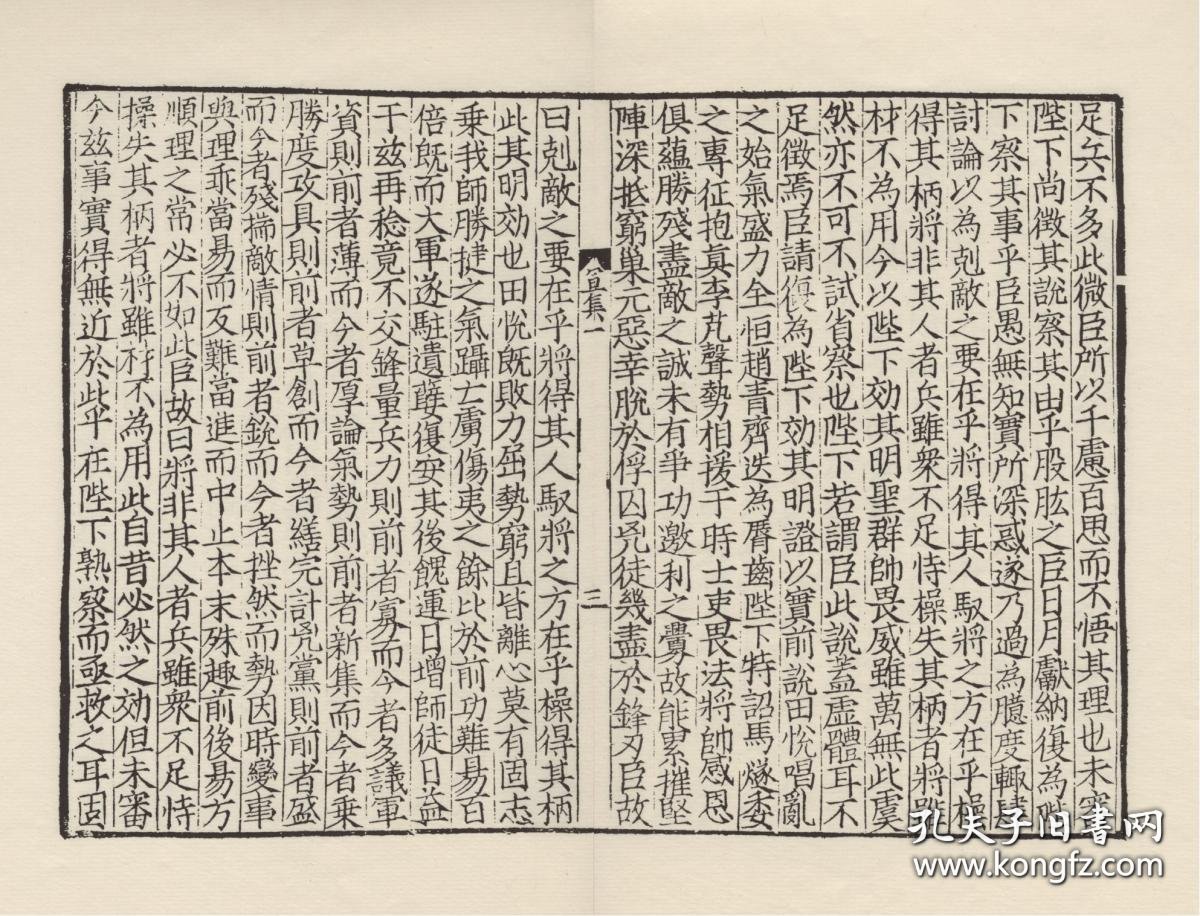 足兵不多此微臣所以千慮百思而不悟其理也未審
陛下尚徵其說察其由乎股肱之臣日月獻納復為陛
下察其事乎臣愚無知實所深惑遂乃過為臆度輒肆
討論以為剋敵之要在乎將得其人馭將之方在乎操
得其柄將非其人者兵雖衆不足恃操失其柄者將雖
材不為用今以陛下効其明聖群帥畏威雖萬無此虞
然亦不可不試省察也陛下若謂臣此說蓋虛體耳不
足徵焉臣請復為陛下効其明證以實前說田悅唱亂
之始氣盛力全恒趙青齊迭為脣齒陛下特詔馬燧委
之專征抱真李芃聲勢相援于時士吏畏法將帥感恩
俱蘊勝殘盡敵之誠未有爭功邀利之釁故能累摧堅
陣深抵窮巢元惡幸脫於俘囚兇徒幾盡於鋒刃臣故
奏集一
二
曰剋敵之要在乎將得其人馭將之方在乎操得其柄
此其明効也田悅既敗力屈勢窮且皆離心莫有固志
乗我師勝捷之氣躡亡虜傷夷之餘比於前功難易百
倍既而大軍遂駐遺孽復安其後餽運日增師徒日益
于茲再稔竟不交鋒量兵力則前者寡而今者多議軍
資則前者薄而今者厚論氣勢則前者新集而今者乗
勝度攻具則前者草創而今者繕完計兇黨則前者盛
而今者殘揣敵情則前者銳而今者挫然而勢因時變事
與理乖當易而反難當進而中止本末殊趣前後易方
順理之常必不如此臣故曰將非其人者兵雖衆不足恃
操失其柄者將雖材不為用此自昔必然之効但未審
今茲事實得無近於此乎在陛下熟察而亟救之耳固
孔夫子旧書网
www.kongfz.com